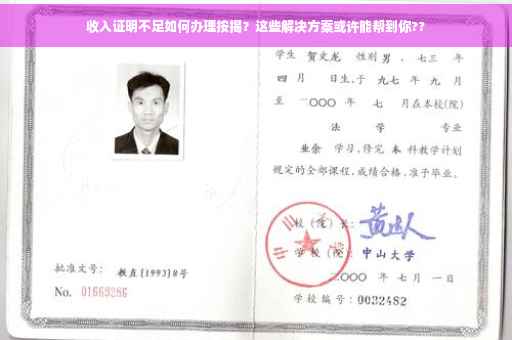 收入证明不足如何办理按揭？这些解决方案或许能帮到你??
学生 贺文龙 性别 男 ，七三 年
四 月 日生，于 九七 年 九 月
至 二〇〇〇 年 七 月在本校(院)
法 学 专业
业余 学习，修完 本 科教学计划
规定的全部课程，成绩合格，准予毕业。
校（院）长：
学 校（院）：中山大学
二〇〇〇 年 七 月 一 日
批准文号： 教直[1993]8号
No. 01669286
学校编号：0032482